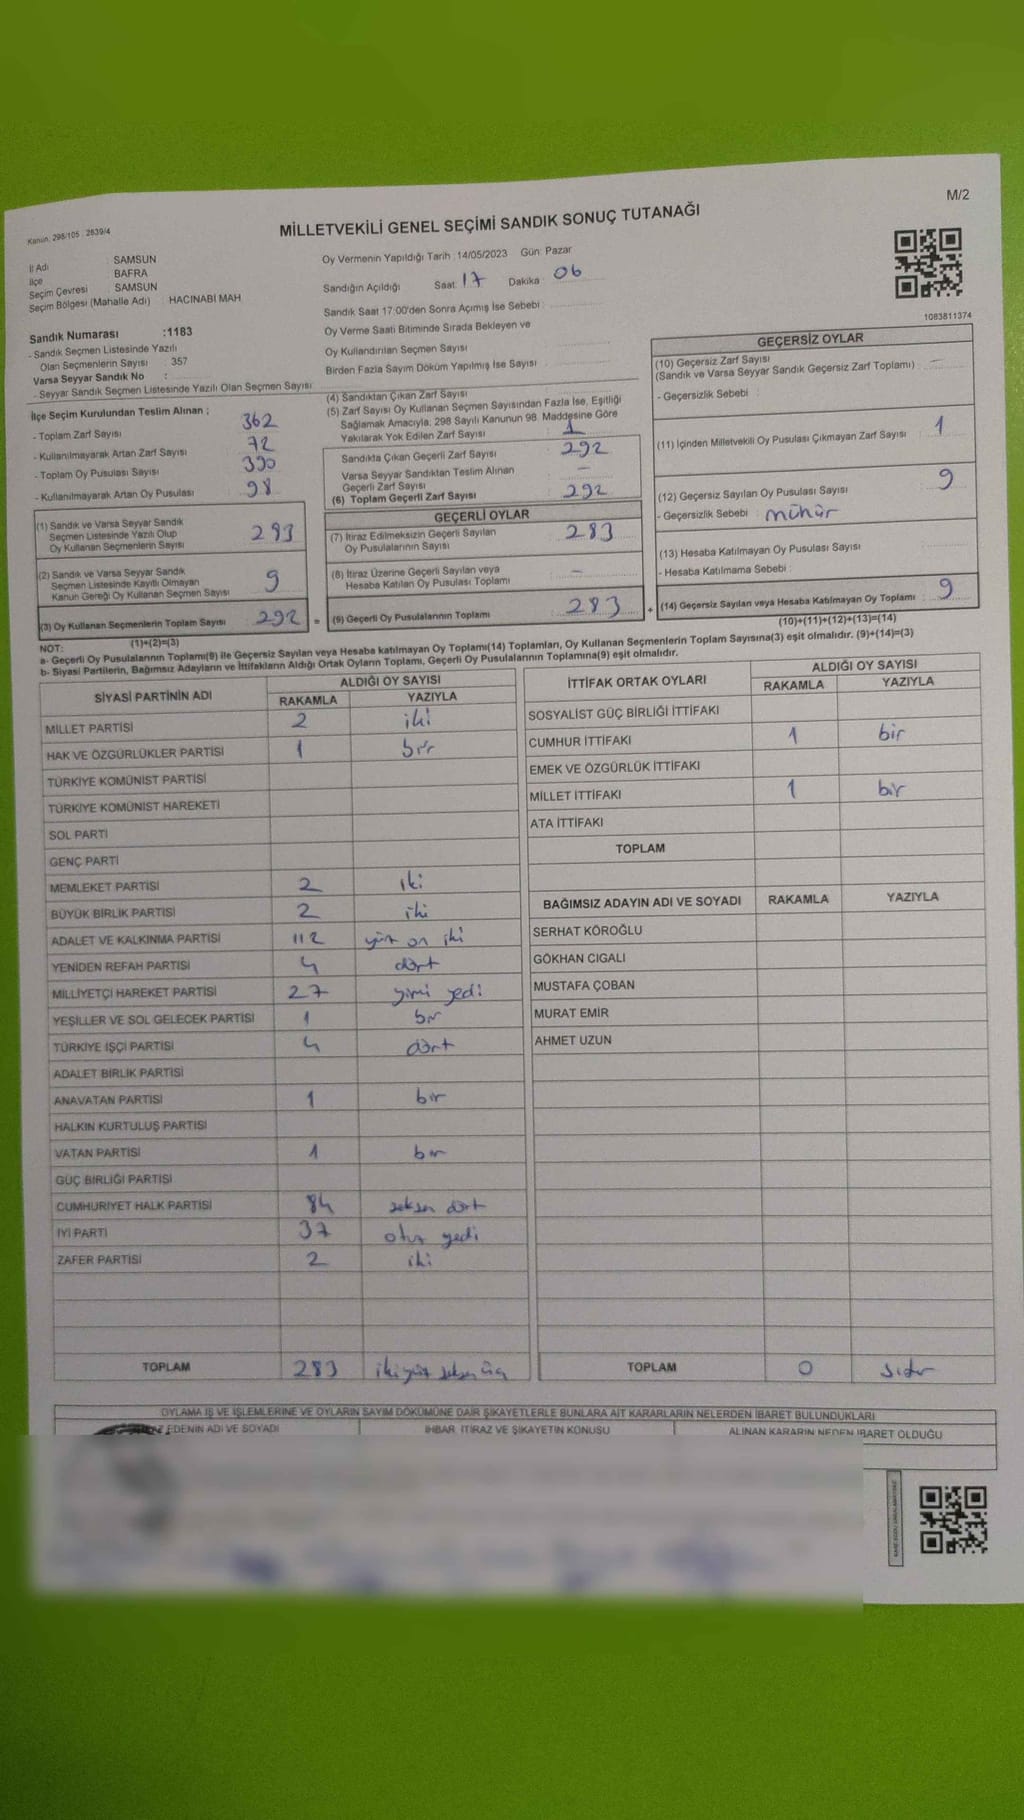 M/2
Kanun: 298/105 : 2839/4
MİLLETVEKİLİ GENEL SEÇİMİ SANDIK SONUÇ TUTANAĞI
İl Adı : SAMSUN
İlçe : BAFRA
Seçim Çevresi : SAMSUN
Seçim Bölgesi (Mahalle Adı) : HACINABİ MAH
Sandık Numarası :1183
- Sandık Seçmen Listesinde Yazılı
Olan Seçmenlerin Sayısı : 357
Varsa Seyyar Sandık No :
- Seyyar Sandık Seçmen Listesinde Yazılı Olan Seçmen Sayısı
Oy Vermenin Yapıldığı Tarih :14/05/2023 Gün: Pazar
Sandığın Açıldığı Saat: 17 Dakika : 06
Sandık Saat 17:00'den Sonra Açımış İse Sebebi :
Oy Verme Saati Bitiminde Sırada Bekleyen ve
Oy Kullandırılan Seçmen Sayısı
Birden Fazla Sayım Döküm Yapılmış İse Sayısı
1083811374
İlçe Seçim Kurulundan Teslim Alınan ;
- Toplam Zarf Sayısı 362
- Kullanılmayarak Artan Zarf Sayısı 72
- Toplam Oy Pusulası Sayısı 390
- Kullanılmayarak Artan Oy Pusulası 98
(1) Sandık ve Varsa Seyyar Sandık
Seçmen Listesinde Yazılı Olup
Oy Kullanan Seçmenlerin Sayısı 283
(2) Sandık ve Varsa Seyyar Sandık
Seçmen Listesinde Kayıtlı Olmayan
Kanun Gereği Oy Kullanan Seçmen Sayısı 9
(3) Oy Kullanan Seçmenlerin Toplam Sayısı : 292 =
(1)+(2)=(3)
(4) Sandıktan Çıkan Zarf Sayısı
(5) Zarf Sayısı Oy Kullanan Seçmen Sayısından Fazla İse, Eşitliği
Sağlamak Amacıyla; 298 Sayılı Kanunun 98. Maddesine Göre
Yakılarak Yok Edilen Zarf Sayısı : 1
Sandıkta Çıkan Geçerli Zarf Sayısı 292
Varsa Seyyar Sandıktan Teslim Alınan
Geçerli Zarf Sayısı –
(6) Toplam Geçerli Zarf Sayısı 292
GEÇERLİ OYLAR
(7) İtiraz Edilmeksizin Geçerli Sayılan
Oy Pusulalarının Sayısı 283
(8) İtiraz Üzerine Geçerli Sayılan veya
Hesaba Katılan Oy Pusulası Toplamı –
(9) Geçerli Oy Pusulalarının Toplamı : 283 +
GEÇERSİZ OYLAR
(10) Geçersiz Zarf Sayısı
(Sandık ve Varsa Seyyar Sandık Geçersiz Zarf Toplamı) : –
- Geçersizlik Sebebi :
(11) İçinden Milletvekili Oy Pusulası Çıkmayan Zarf Sayısı : 1
(12) Geçersiz Sayılan Oy Pusulası Sayısı : 9
- Geçersizlik Sebebi : mühür
(13) Hesaba Katılmayan Oy Pusulası Sayısı
- Hesaba Katılmama Sebebi :
(14) Geçersiz Sayılan veya Hesaba Katılmayan Oy Toplamı : 9
(10)+(11)+(12)+(13)=(14)
NOT:
a- Geçerli Oy Pusulalarının Toplamı(9) ile Geçersiz Sayılan veya Hesaba katılmayan Oy Toplamı(14) Toplamları, Oy Kullanan Seçmenlerin Toplam Sayısına(3) eşit olmalıdır. (9)+(14)=(3)
b- Siyasi Partilerin, Bağımsız Adayların ve İttifakların Aldığı Ortak Oyların Toplamı, Geçerli Oy Pusulalarının Toplamına(9) eşit olmalıdır.
SİYASİ PARTİNİN ADI ALDIĞI OY SAYISI
RAKAMLA YAZIYLA
MİLLET PARTİSİ 2 iki
HAK VE ÖZGÜRLÜKLER PARTİSİ 1 bir
TÜRKİYE KOMÜNİST PARTİSİ
TÜRKİYE KOMÜNİST HAREKETİ
SOL PARTİ
GENÇ PARTİ
MEMLEKET PARTİSİ 2 iki
BÜYÜK BİRLİK PARTİSİ 2 iki
ADALET VE KALKINMA PARTİSİ 112 yüz on iki
YENİDEN REFAH PARTİSİ 4 dört
MİLLİYETÇİ HAREKET PARTİSİ 27 yirmi yedi
YEŞİLLER VE SOL GELECEK PARTİSİ 1 bir
TÜRKİYE İŞÇİ PARTİSİ 4 dört
ADALET BİRLİK PARTİSİ
ANAVATAN PARTİSİ 1 bir
HALKIN KURTULUŞ PARTİSİ
VATAN PARTİSİ 1 bir
GÜÇ BİRLİĞİ PARTİSİ
CUMHURİYET HALK PARTİSİ 84 seksen dört
İYİ PARTİ 37 otuz yedi
ZAFER PARTİSİ 2 iki
TOPLAM 283 ikiyüz seksen üç
İTTİFAK ORTAK OYLARI ALDIĞI OY SAYISI
RAKAMLA YAZIYLA
SOSYALİST GÜÇ BİRLİĞİ İTTİFAKI
CUMHUR İTTİFAKI 1 bir
EMEK VE ÖZGÜRLÜK İTTİFAKI
MİLLET İTTİFAKI 1 bir
ATA İTTİFAKI
TOPLAM
BAĞIMSIZ ADAYIN ADI VE SOYADI RAKAMLA YAZIYLA
SERHAT KÖROĞLU
GÖKHAN CIGALI
MUSTAFA ÇOBAN
MURAT EMİR
AHMET UZUN
TOPLAM 0 sıfır
OYLAMA İŞ VE İŞLEMLERİNE VE OYLARIN SAYIM DÖKÜMÜNE DAİR ŞİKAYETLERLE BUNLARA AİT KARARLARIN NELERDEN İBARET BULUNDUKLARI
EDENİN ADI VE SOYADI İHBAR, İTİRAZ VE ŞİKAYETİN KONUSU ALINAN KARARIN NEDEN İBARET OLDUĞU